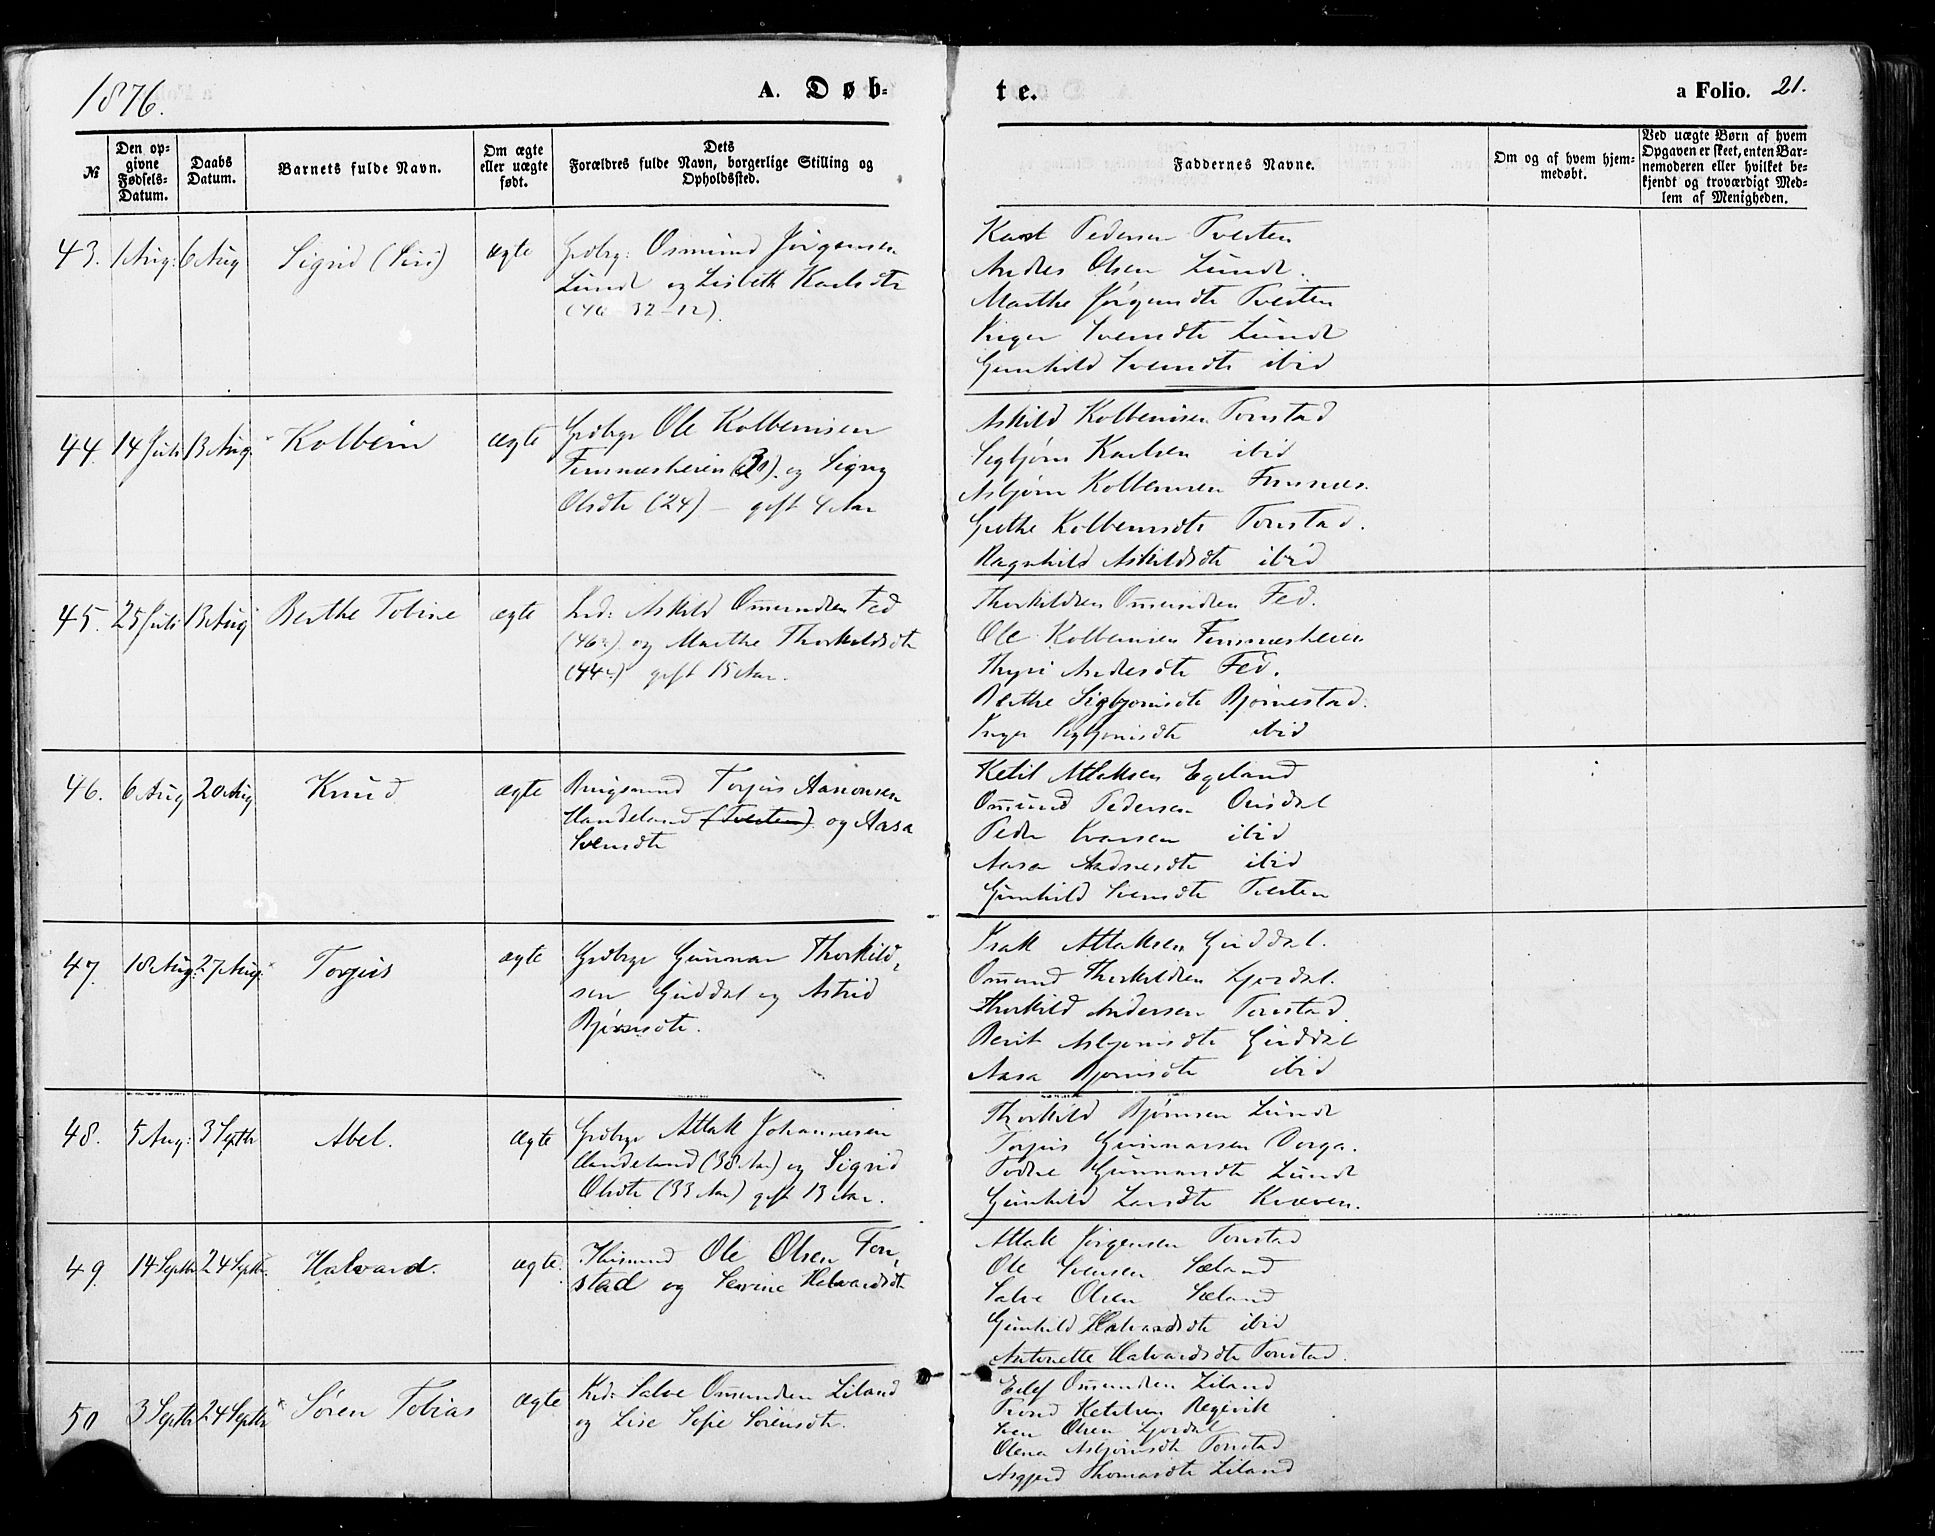 1876.
A. Døb-
te.
a Folio. 21.
№
Den op-
givne
Fødsels-
Datum.
Daabs
Datum.
Barnets fulde Navn.
Om ægte
eller uægte
født.
Dets
Forældres fulde Navn, borgerlige Stilling og
Opholdssted.
Faddernes Navne.
Om og af hvem hjem-
medøbt.
Ved uægte Børn af hvem
Opgaven er skeet, enten Bar-
nemoderen eller hvilket be-
kjendt og troværdigt Med-
lem af Menigheden.
43. 1 Aug: 6 Aug Sigrid (Siri) ægte
Grdbrg: Osmund Jørgensen
Lund og Lisbeth Karlsdtr
Pedersen Tveiten
Andres Olsen Lunde.
Marthe Jørgensdtr Tveiten
Inger Svensdtr Lunde
Gunhild Svensdtr ibid
44. 14 Juli 13 Aug. Kolbein ægte
Grdbrgr Ole Kolbeinsen
Finnæsheien og Signy
Olsdtr (24) – gift 4 Aar
Askild Kolbeinsen Tonstad
Sigbjørn Karlsen ibid
Asbjørn Kolbeinsen Finnæs.
Grethe Kolbeinsdtr Tonstad.
Ragnhild Askildsdtr ibid
45. 25 Juli 13 Aug Berthe Tobine ægte
Askild Omundsen Fed
(46) og Marthe Thorkildsdtr
(44) gift 15 Aar.
Omundsen Fed.
Ole Kolbeinsen Finnæsheien
Andersdtr Fed.
Berthe Sigbjørnsdtr Bjørnestad.
Inger Sigbjørnsdtr ibid
46. 6 Aug 20 Aug Knud ægte
Torjus Aanonsen
Handeland (Tveiten) og Aasa
Svensdtr
Ketil Atlaksen Egeland
Omund Pedersen Ousdal
Peder Ivarsen ibid
Aasa Aadnesdtr ibid
Gunhild Svensdtr Tveiten
47. 18 Aug: 27 Aug: Torjus ægte
Grdbrgr Gunnar Thorkild-
sen Girddal og Astrid
Bjørnsdtr.
Isak Atlaksen Girddal.
Omund Thorkildsen
Thorkild Andersen Tonstad.
Berit Asbjørnsdtr Girddal
Aasa Bjørnsdtr ibid
48. 5 Aug: 3 Septbr Abel. ægte
Grdbrgr Atlak Johannesen
Handeland (38 Aar) og Sigrid
Olsdtr (33 Aar) gift 13 Aar.
Thorkild Bjørnsen Lunde
Torjus Gunnarsen Dorga.
Todne Gunnarsdtr Lunde
Gunhild Larsdtr Kvæven.
49. 14 Septbr 24 Septbr. Halvard. ægte.
Huusmand Ole Olsen Ton-
stad og Serine Halvardsdtr
Atlak Jørgensen Tonstad
Ole Svensen Sæland
Salve Olsen Sæland
Gunhild Halvardsdtr ibid
Antonette Halvardsdtr Tonstad.
50 3 Septbr 24 Septbr Søren Tobias ægte
Salve Omundsen Liland
og Lise Sofie Sørensdtr.
Eilef Omundsen Liland
Trond Ketelsen Regevik
Sven Olsen
Olena Asbjørnsdtr Tonstad
Asgjerd Thomasdtr Liland